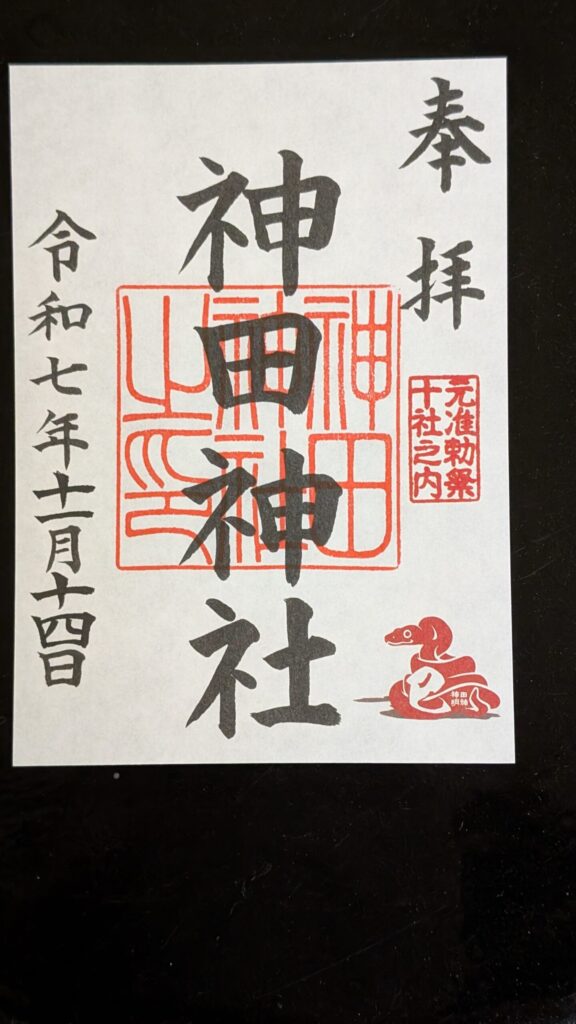 奉拝
元准勅祭
十社之内
神田神社
神田神社之印
令和七年十一月十四日
神田明神